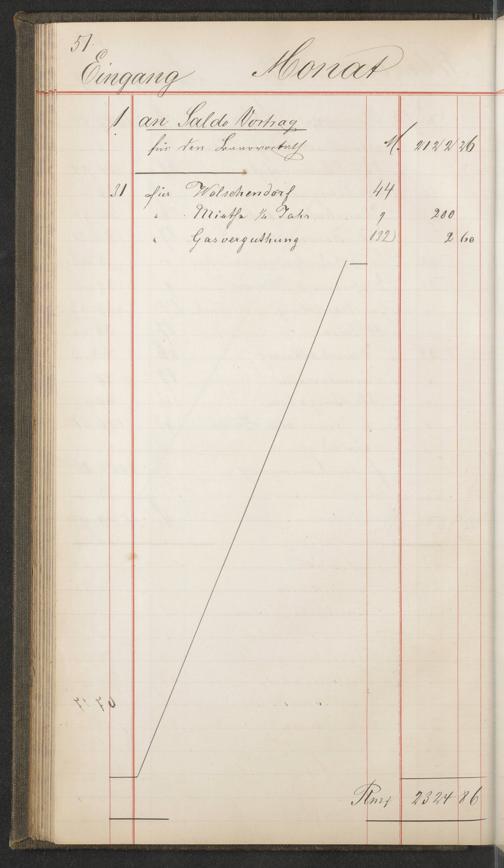 51.
Eingang Monat
1 an Saldo Vortrag
für den M. 2122 26
31 für Wolschendorf 44
" Miethe ½ Jahr 9 200
" Gasverguthung 132 2 60
Rmk 2324 86